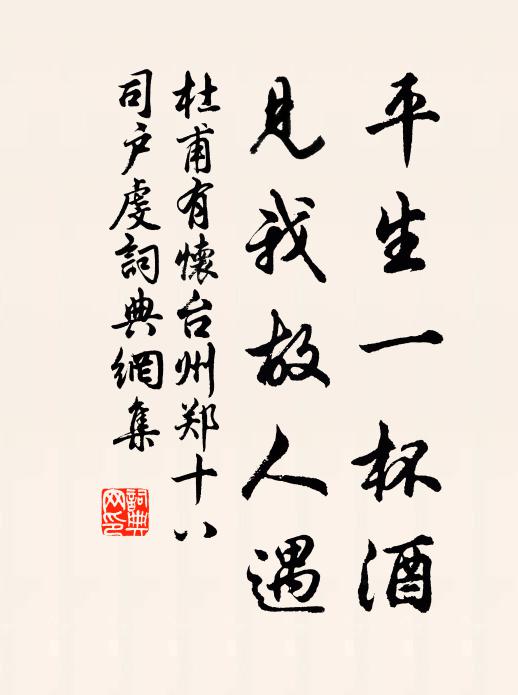 平生一杯酒
見我故人遇
杜甫有懷台州郑十八
司户虔詞典網集
詞典
网印